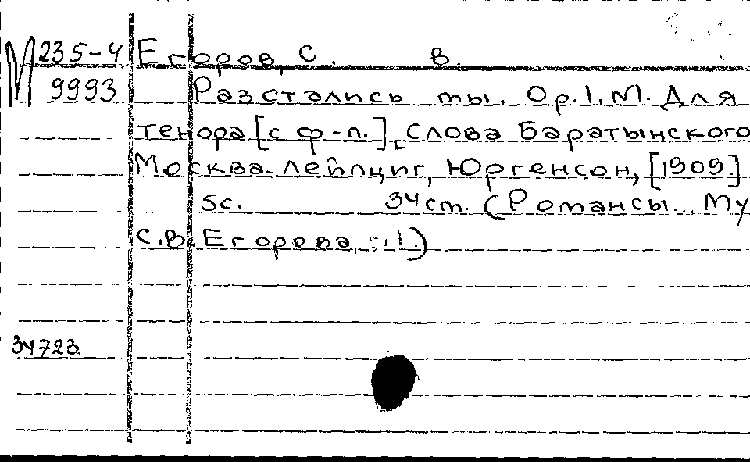 М 235-4 Егоров, С. В.
9993 Разстались мы. Op.1.М. Для
тенора [с ф-п.], Слова Баратынского
Москва. Лейпциг, Юргенсон, [1909]
5с. 34 ст. (Романсы. Му
С.В. Егорова 1)
34723